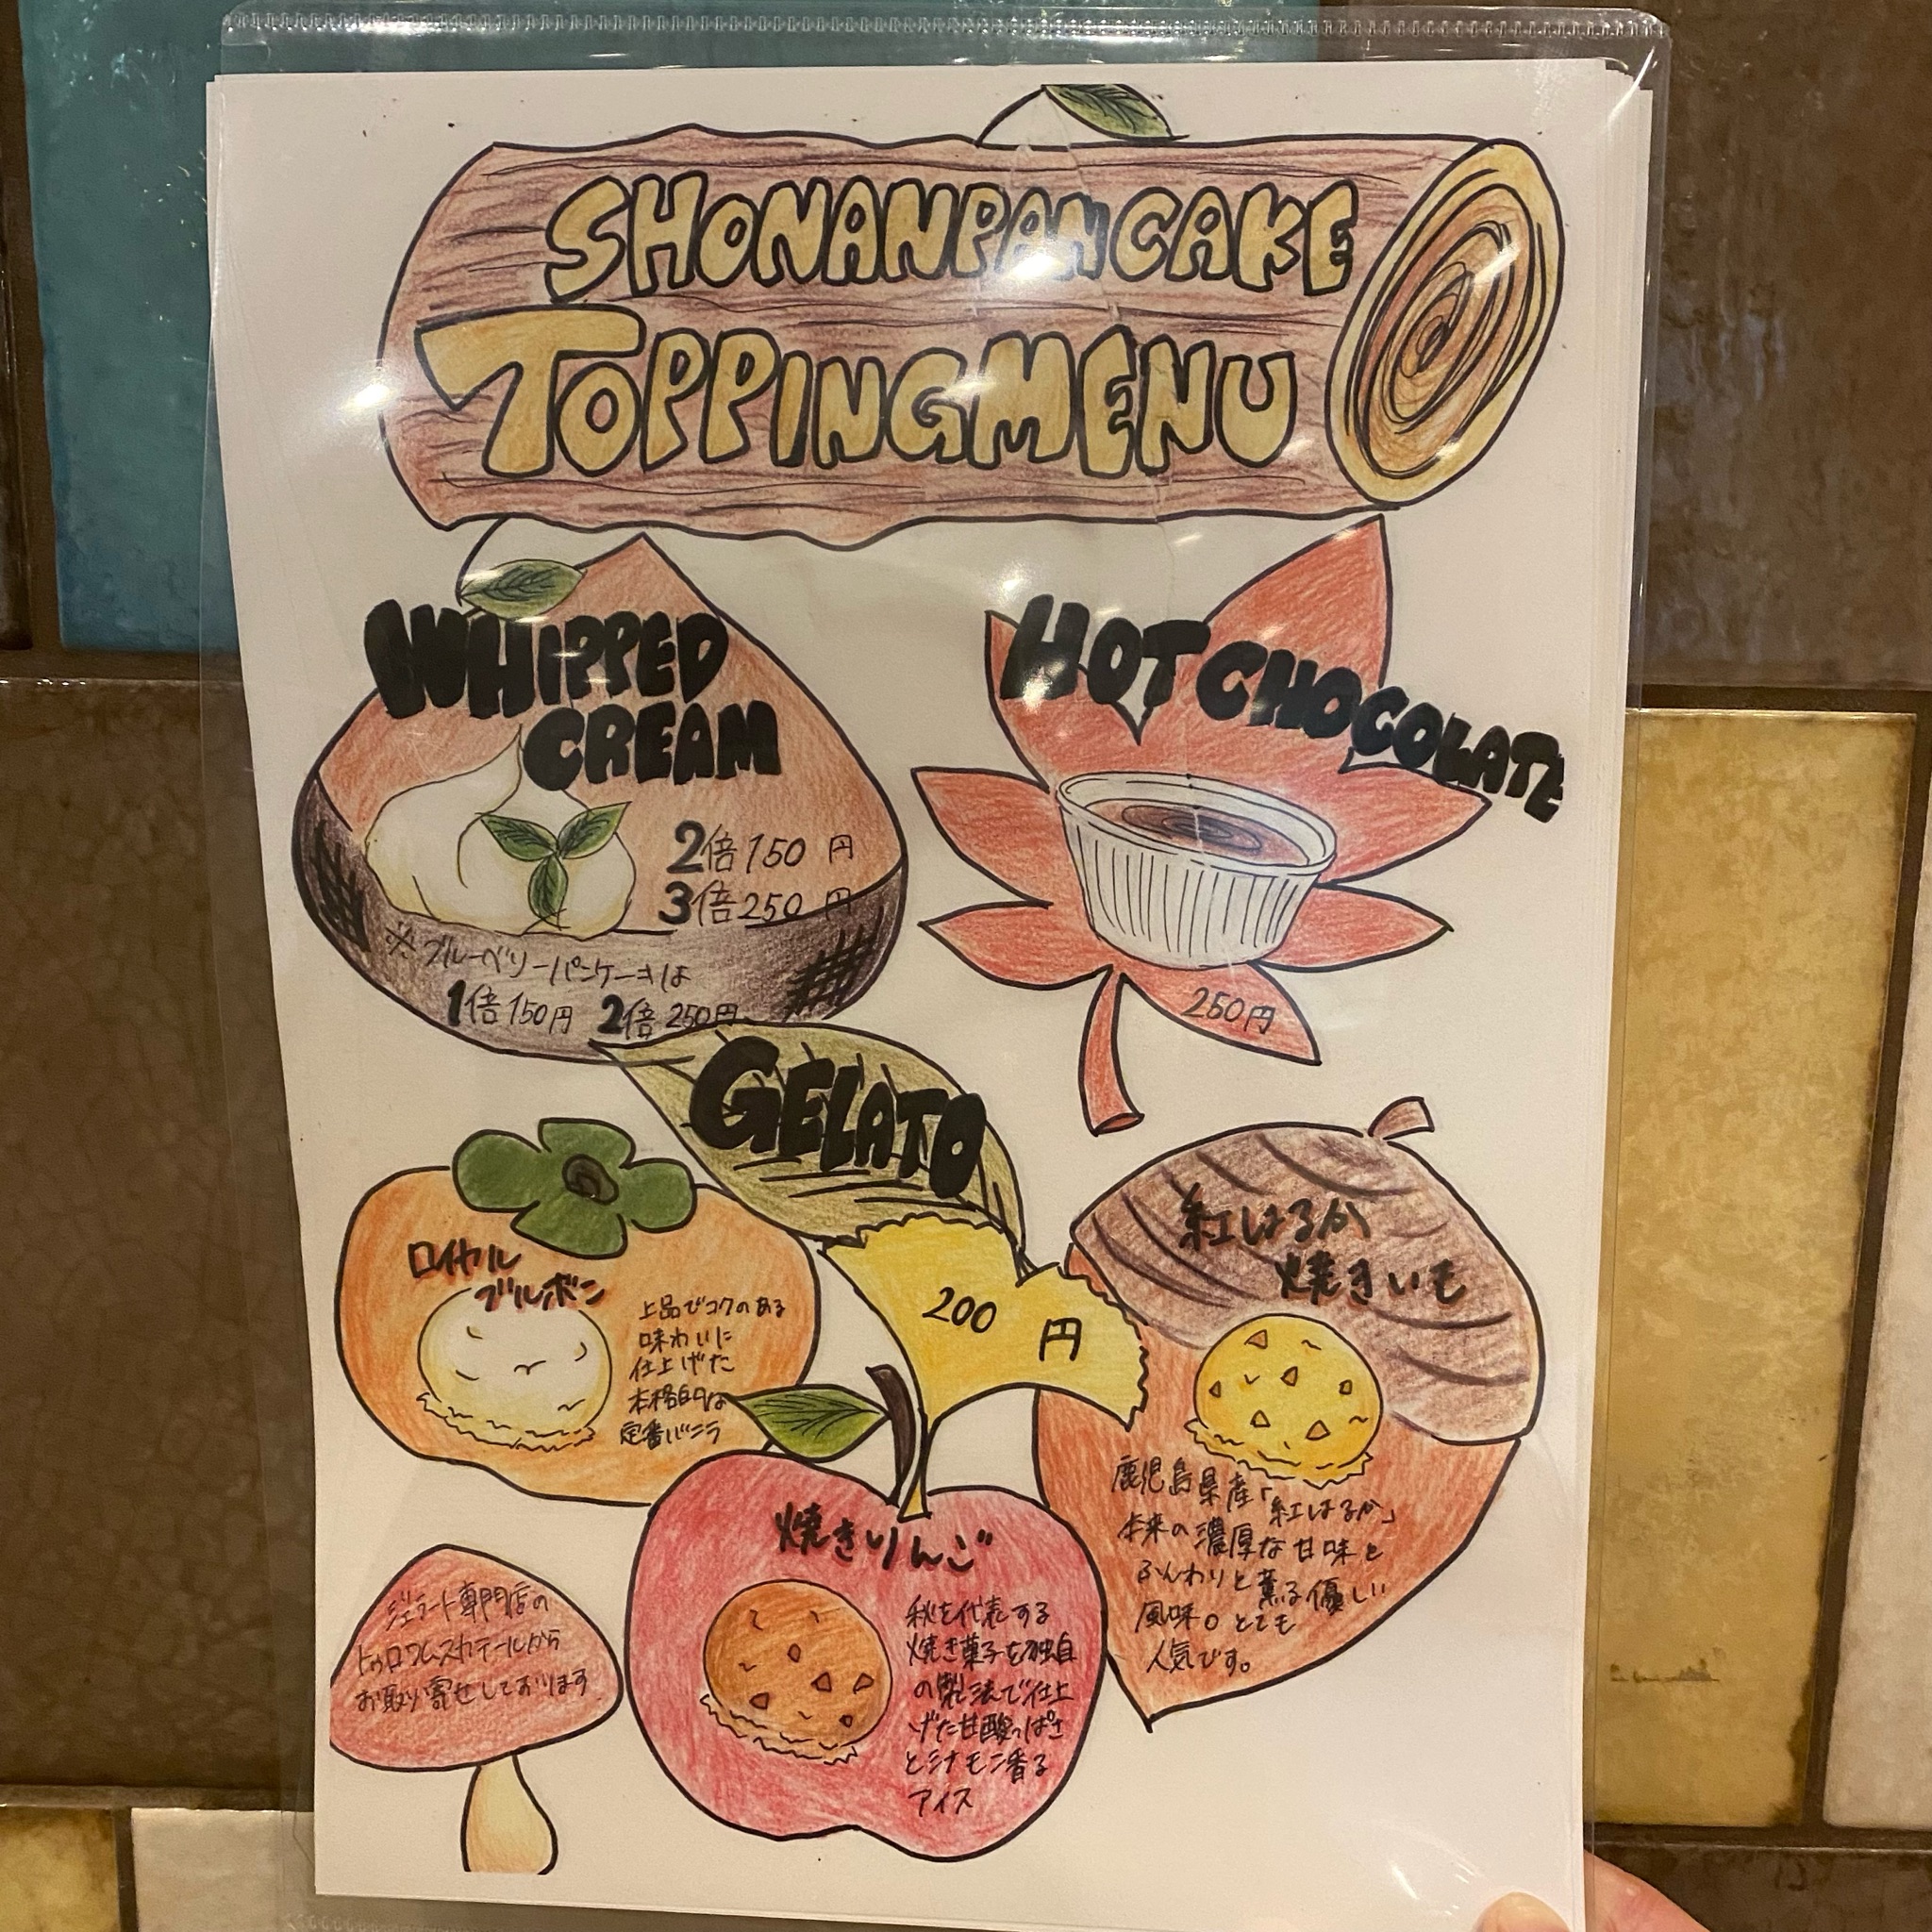 SHONANPANCAKE
TOPPINGMENU
WHIPPED
CREAM
2倍150円
3倍250円
※ブルーベリーパンケーキは
1倍150円 2倍250円
HOT CHOCOLATE
250円
GELATO
200円
ロイヤル
ブルボン
上品でコクのある
味わいに
仕上げた
本格的な
定番バニラ
紅はるか
焼きいも
鹿児島県産「紅はるか」
本来の濃厚な甘味と
ふんわりと薫る優しい
風味。とても
人気です。
焼きりんご
秋を代表する
焼き菓子を独自
の製法で仕上
げた甘酸っぱさ
とシナモン香る
アイス
ジェラート専門店の
から
お取り寄せしております